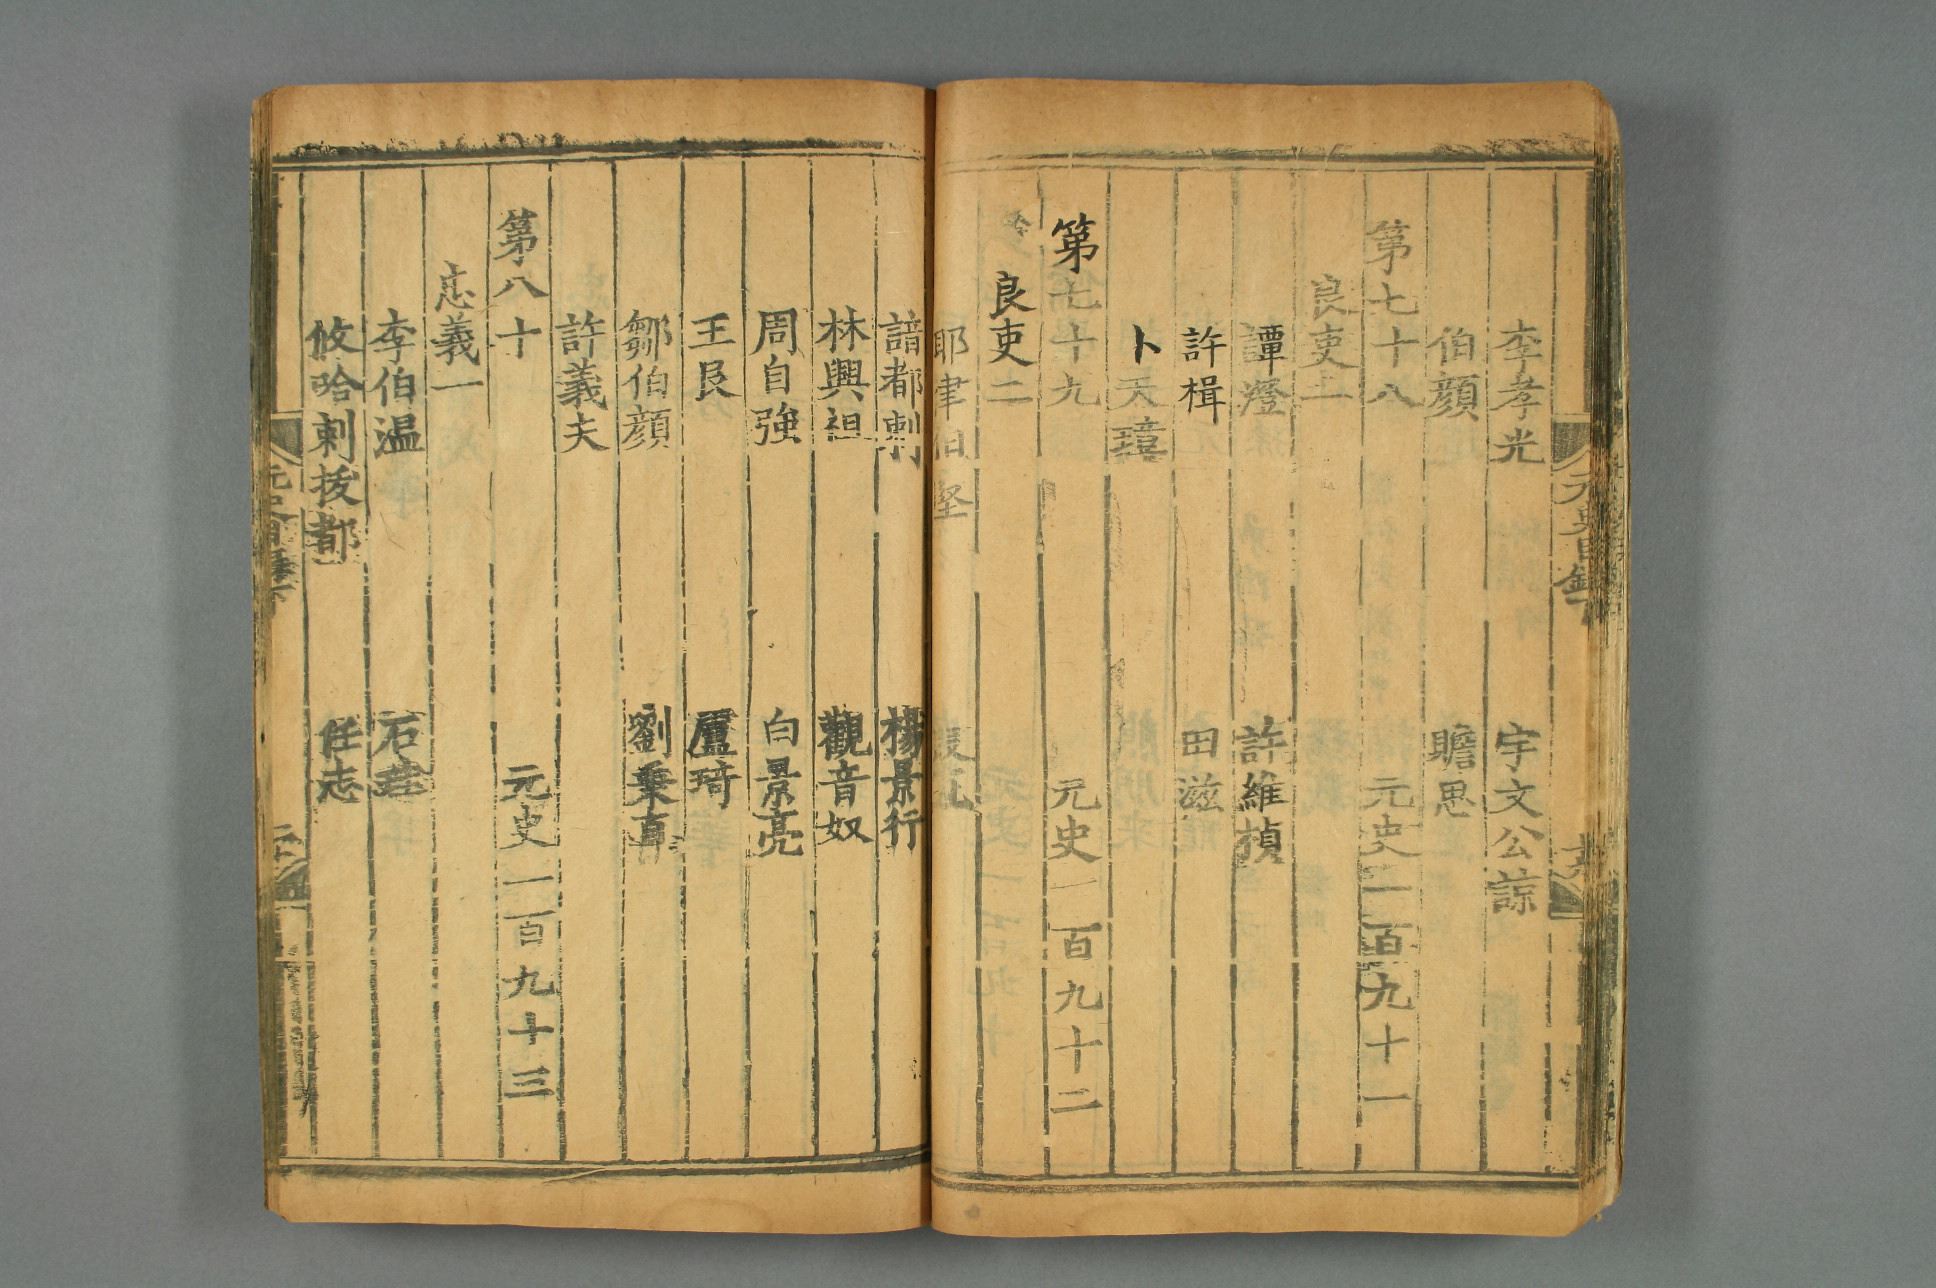 李孝光　宇文公諒
伯顔　贍思
第七十八　元史一百九十一
良吏一
譚澄　許維楨
許楫　田滋
卜天璋
第七十九　元史一百九十二
良吏二
耶律伯堅
諳都剌　楊景行
林興祖　觀音奴
周自強　白景亮
王艮　盧琦
鄒伯顔　劉秉直
許義夫
第八十　元史一百九十三
忠義一
李伯温　石珪
攸哈剌拔都　任志
元史目錄下